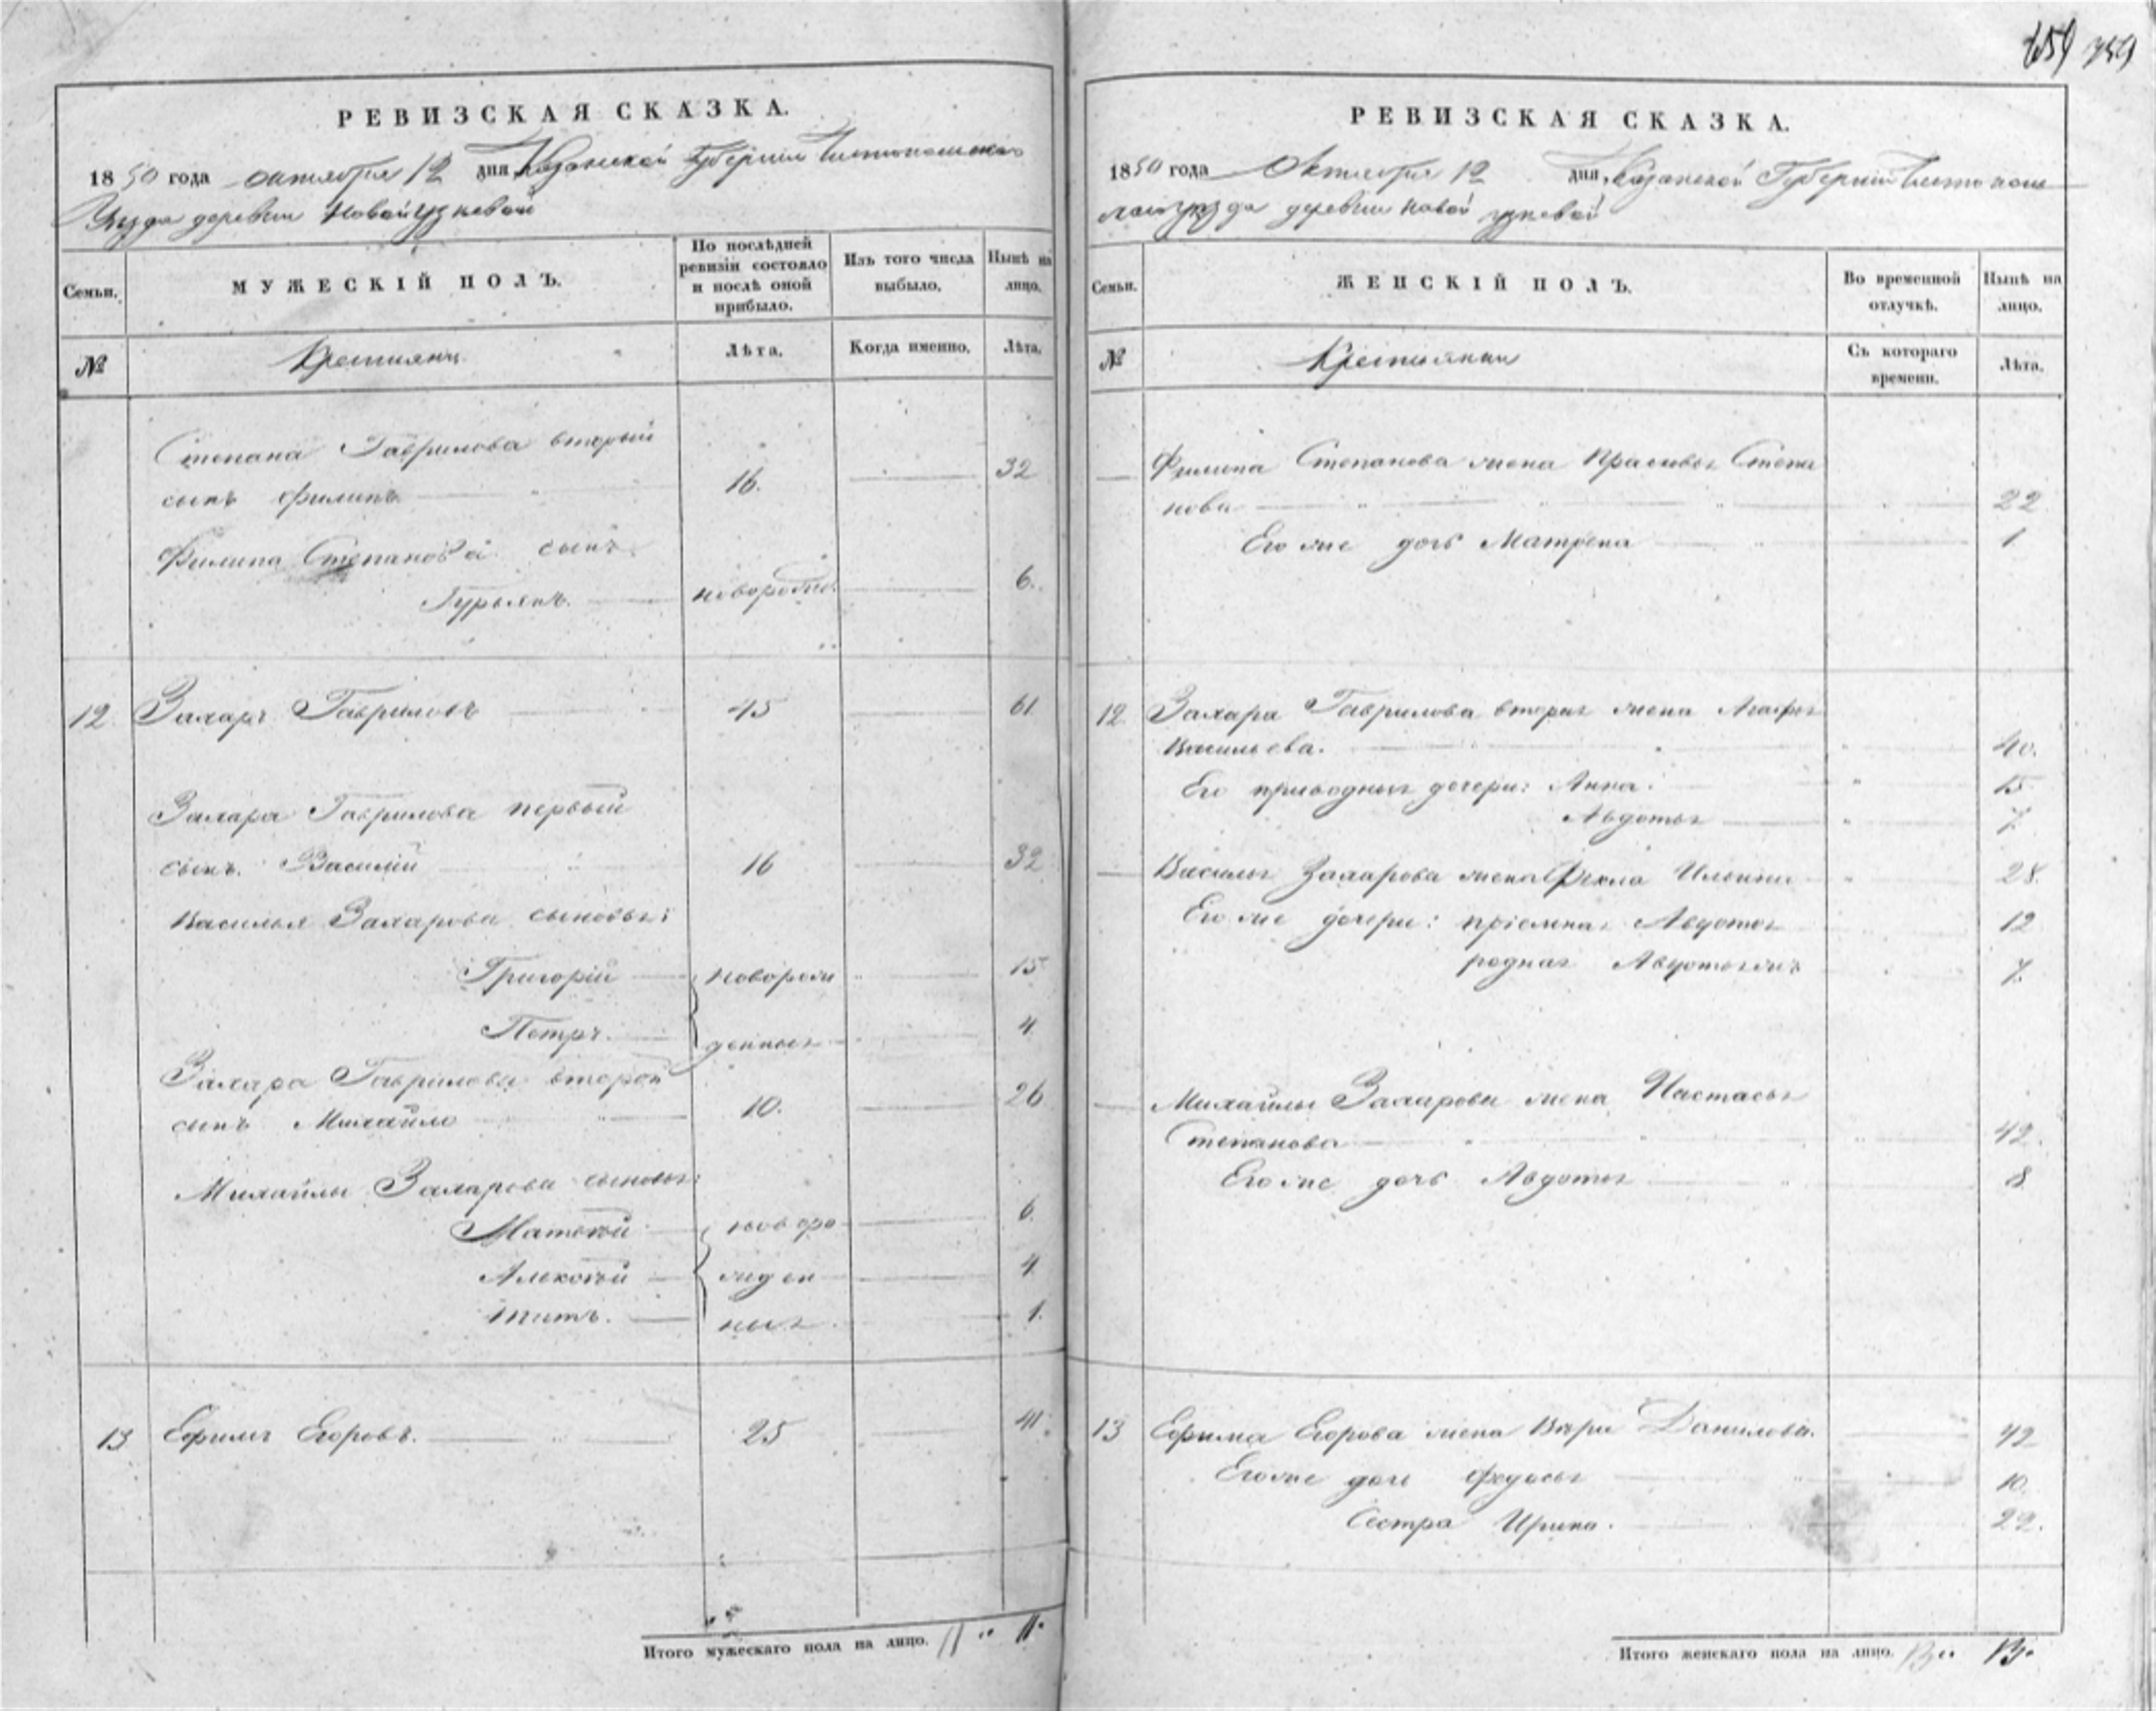 659 759
РЕВИЗСКАЯ СКАЗКА.
1850 года октября 12 дня Казанской Губернии Чистопольскаго
Уезда деревни Новой
Семьи.
МУЖЕСКІЙ ПОЛЪ.
По послѣдней ревизіи состояло и послѣ оной прибыло.
Изъ того числа выбыло.
Нынѣ на лицо.
№
Крестьяне
Лѣта.
Когда именно.
Лѣта.
Степана Гаврилова вторый
сынъ Филипъ 16. 32
Филипа Степанова сынъ
Гурьянъ. новорожд. 6.
12 Захаръ Гавриловъ 45 61
Захара Гаврилова первый
сынъ Василий 16 32
Василья Захарова сыновья:
Григорій новорож 15
Петръ. денныя 4
Захара Гаврилова второй
сынъ Михайло 10. 26
Михайлы Захарова сыновья:
Матвѣй новоро 6
Алексѣй жден 4
Титъ. ныя 1.
13 Ефимъ Егоровъ. 25 41.
Итого мужескаго пола на лицо. 11 11.
РЕВИЗСКАЯ СКАЗКА.
1850 года Октября 12 дня Казанской Губернии Чистополь
скаго уезда деревни Новой
Семьи.
ЖЕНСКІЙ ПОЛЪ.
Во временной отлучкѣ.
Нынѣ на лицо.
№
Крестьянки
Съ котораго времени.
Лѣта.
Филипа Степанова жена Прасковья Степа
нова 22
Его же дочь Матрена 1
12 Захара Гаврилова вторая жена Агафья
Васильева. 40.
Его приводныя дочери: Анна. 15
Авдотья 7
Василья Захарова жена Фекла Ильина 28.
Его же дочери: пріемная Авдотья 12
родная Авдотья же 7.
Михайлы Захарова жена Настасья
Степанова 42.
Его же дочь Авдотья 8
13 Ефима Егорова жена Варвара Данилова. 42
Его же дочь Федосья 10.
Сестра Ирина. 22.
Итого женскаго пола на лицо. 13 13.